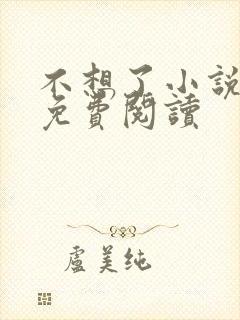 不想了小說
免費閱讀
盧美純